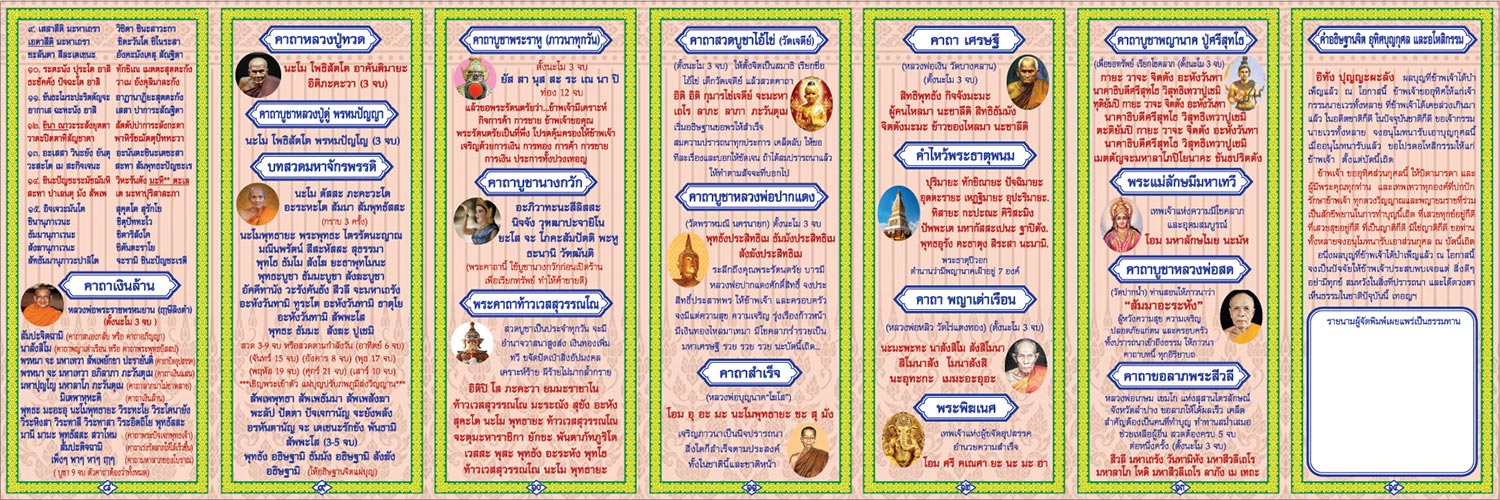 ๙. เสสาสีติ มะหาเถรา วิชิตา ชินะสาวะกา
เอตาสีติ มะหาเถรา ชิตะวันโต ชิโนระสา
ชะลันตา สีละเตเชนะ อังคะมังเคสุ สัณฐิตา
๑๐. ระตะนัง ปุระโต อาสิ ทักขิเณ เมตตะสุตตะกัง
ธะชัคคัง ปัจฉะโต อาสิ วาเม อังคุลิมาละกัง
๑๑. ขันธะโมระปะริตตัญจะ อาฏานาฏิยะสุตตะกัง
อากาเส ฉะทะนัง อาสิ เสสา ปาการะสัณฐิตา
๑๒. ชินา
วาตะปิตตาทิสัญชาตา พาหิรัชฌัตตุปัททะวา
๑๓. อะเสสา วินะยัง ยันตุ อะนันตะชินะเตชะสา
วะสะโต เม สะกิจเจนะ สะทา สัมพุทธะปัญชะเร
๑๔. ชินะปัญชะระมัชฌัมหิ
สะทา ปาเลนตุ มัง สัพเพ เต มะหาปุริสาสะภา
๑๕. อิจเจวะมันโต สุคุตโต สุรักโข
ชินานุภาเวนะ ชิตุปัททะโว
ธัมมานุภาเวนะ ชิตาริสังโค
สังฆานุภาเวนะ ชิตันตะราโย
สัทธัมมานุภาวะปาลิโต จะรามิ ชินะปัญชะเรติ
คาถาเงินล้าน
หลวงพ่อพระราชพรหมยาน (ฤๅษีลิงดำ)
(ตั้งนะโม 3 จบ )
สัมปะจิตฉามิ
นาสังสิโม
พรหมา จะ มหาเทวา สัพเพยักขา ปะรายันติ
พรหมา จะ มหาเทวา อภิลาภา ภะวันตุเม
มหาปุญโญ มหาลาโภ ภะวันตุเม
มิเตพาหุหะติ
พุทธะ มะอะอุ นะโมพุทธายะ วิระทะโย วิระโคนายัง
วิระหิงสา วิระทาสี วิระทาสา วิระอิตถิโย พุทธัสสะ
มานี มามะ พุทธัสสะ สวาโหม
สัมปะติจฉามิ
เพ็งๆ พาๆ หาๆ ฤาๆ
( บูชา 9 จบ ตัวคาถาต้องว่าทั้งหมด)
๘
คาถาหลวงปู่ทวด
นะโม โพธิสัตโต อาคันติมายะ
อิติภะคะวา (3 จบ)
คาถาบูชาหลวงปู่ดู่ พรหมปัญญา
นะโม โพธิสัตโต พรหมปัญโญ (3 จบ)
บทสวดมหาจักรพรรดิ
นะโม ตัสสะ ภะคะวะโต
อะระหะโต สัมมา สัมพุทธัสสะ
(กราบ 3 ครั้ง)
นะโมพุทธายะ พระพุทธะ ไตรรัตนะญาณ
มณีนพรัตน์ สีสะหัสสะ สุธรรมา
พุทโธ ธัมโม สังโฆ ยะธาพุทโมนะ
พุทธะบูชา ธัมมะบูชา สังฆะบูชา
อัคคีทานัง วะรังคันธัง สีวลี จะมหาเถรัง
อะหังวันทามิ ทูระโต อะหังวันทามิ ธาตุโย
อะหังวันทามิ สัพพะโส
พุทธะ ธัมมะ สังฆะ ปูเชมิ
สวด 3-9 จบ หรือสวดตามกำลังวัน (อาทิตย์ 6 จบ)
(จันทร์ 15 จบ) (อังคาร 8 จบ) (พุธ 17 จบ)
(พฤหัส 19 จบ) (ศุกร์ 21 จบ) (เสาร์ 10 จบ)
สัพเพพุทธา สัพเพธัมมา สัพเพสังฆา
พะลัป ปัตตา ปัจเจกานัญ จะยังพลัง
อรหันตานัญ จะ เตเชนะรักขัง พันธามิ
สัพพะโส (3-5 จบ)
พุทธัง อธิษฐามิ ธัมมัง อธิษฐามิ สังฆัง
อธิษฐามิ (ให้อธิษฐานจิตแผ่บุญ)
๙
คาถาบูชาพระราหู (ภาวนาทุกวัน)
ตั้งนะโม 3 จบ
ยัส สา นุส สะ ระ เณ นา ปิ
ท่อง 12 จบ
แล้วขอพระรัตนตรัยว่า...ข้าพเจ้ามีเคราะห์
กิจการค้า การขาย ข้าพเจ้าขอคุณ
พระรัตนตรัยเป็นที่พึ่ง โปรดคุ้มครองให้ข้าพเจ้า
เจริญด้วยการเงิน การทอง การค้า การขาย
การเงิน ประการทั้งปวงเทอญ
คาถาบูชานางกวัก
อะภิวาทะนะสีลิสสะ
นิจจัง วุฑฒาปะจายิโน
ยะโส จะ โภคะสัมปัตติ พะหู
ธะนานิ วัฑฒันติ
(พระคาถานี้ ใช้บูชานางกวักก่อนเปิดร้าน
เพื่อเรียกทรัพย์ ทำให้ค้าขายดี)
พระคาถาท้าวเวสสุวรรณโณ
สวดบูชาเป็นประจำทุกวัน จะมี
อำนาจวาสนาสูงส่ง เงินทองเพิ่ม
ทวี ขจัดปัดเป่าสิ่งอัปมงคล
เคราะห์ร้าย ผีร้ายไม่มากล้ำกราย
อิติปิ โส ภะคะวา ยมมะราชาโน
ท้าวเวสสุวรรณโณ มะระณัง สุขัง อะหัง
สุคะโต นะโม พุทธายะ ท้าวเวสสุวรรณโณ
จะตุมะหาราชิกา ยักขะ พันตาภัทภูริโต
เวสสะ พุสะ พุทธัง อะระหัง พุทโธ
ท้าวเวสสุวรรณโณ นะโม พุทธายะ
๑๐
คาถาสวดบูชาไอ้ไข่ (วัดเจดีย์)
(ตั้งนะโม 3 จบ) ให้ตั้งจิตเป็นสมาธิ เรียกชื่อ
ไอ้ไข่ เด็กวัดเจดีย์ แล้วสวดคาถา
อิติ อิติ กุมารไข่เจดีย์ จะมะหา
เถโร ลาภะ ลาภา ภะวันตุเม
เริ่มอธิษฐานขอพรให้สำเร็จ
สมความปรารถนาทุกประการ เคล็ดลับ ให้ขอ
ทีละเรื่องและบอกให้ชัดเจน ถ้าได้สมปรารถนาแล้ว
ให้ทำตามสัจจะที่บอกไป
คาถาบูชาหลวงพ่อปากแดง
(วัดพราหมณี นครนายก) ตั้งนะโม 3 จบ
พุทธังประสิทธิเม ธัมมังประสิทธิเม
สังฆังประสิทธิเม
ระลึกถึงคุณพระรัตนตรัย บารมี
หลวงพ่อปากแดงศักดิ์สิทธิ์ จงประ
สิทธิ์ประสาทพร ให้ข้าพเจ้า และครอบครัว
จงมีแต่ความสุข ความเจริญ รุ่งเรืองก้าวหน้า
มีเงินทองไหลมาเทมา มีโชคลาภร่ำรวยเป็น
มหาเศรษฐี รวย รวย รวย นะบัดนี้เถิด...
คาถาสำเร็จ
(หลวงพ่อบุญนาค"โฆโส")
โอม อุ อะ มะ นะโมพุทธายะ ชะ สุ มัง
เจริญภาวนาเป็นนิจปรารถนา
สิ่งใดก็สำเร็จตามประสงค์
ทั้งในชาตินี้และชาติหน้า
๑๑
คาถา เศรษฐี
(หลวงพ่อเงิน วัดบางคลาน)
(ตั้งนะโม 3 จบ)
สิทธิพุทธัง กิจจังมะมะ
ผู้คนไหลมา นะชาลีติ สิทธิธัมมัง
จิตตังมะมะ ข้าวของไหลมา นะชาลีติ
คำไหว้พระธาตุพนม
ปุริมายะ ทักขิณายะ ปัจฉิมายะ
อุตตะรายะ เหฏฐิมายะ อุปะริมายะ.
ทิสายะ กะปะณะ คิริสะมิง
ปัพพะเต มหากัสสะเปนะ ฐาปิตัง.
พุทธอุรัง คะธาตุง สิระสา นะมามิ.
พระธาตุปีวอก
ตำนานว่ามีพญานาคเฝ้าอยู่ 7 องค์
คาถา พญาเต่าเรือน
(หลวงพ่อหลิว วัดไร่แตงทอง) (ตั้งนะโม 3 จบ)
นะมะพะทะ นาสังสิโม สังสิโมนา
สิโมนาสัง โมนาสังสิ
นะอุทะกะ เมมะอะอุอะ
พระพิฆเนศ
เทพเจ้าแห่งผู้ขจัดอุปสรรค
อำนวยความสำเร็จ
โอม ศรี คเณศา ยะ นะ มะ ฮา
๑๒
คาถาบูชาพญานาค ปู่ศรีสุทโธ
(เพื่อขอทรัพย์ เรียกโชคลาภ (ตั้งนะโม 3 จบ)
กายะ วาจะ จิตตัง อะหังวันทา
นาคาธิบดีศรีสุทโธ วิสุทธิเทวาปูเชมิ
ทุติยัมปิ กายะ วาจะ จิตตัง อะหังวันทา
นาคาธิบดีศรีสุทโธ วิสุทธิเทวาปูเชมิ
ตะติยัมปิ กายะ วาจะ จิตตัง อะหังวันทา
นาคาธิบดีศรีสุทโธ วิสุทธิเทวาปูเชมิ
เมตตัญจะมหาลาโภปิโยนาคะ ขันธปริตตัง
พระแม่ลักษมีมหาเทวี
เทพเจ้าแห่งความมีโชคลาภ
และอุดมสมบูรณ์
โอม มหาลักษไมย นะมัห
คาถาบูชาหลวงพ่อสด
(วัดปากน้ำ) ท่านสอนให้ภาวนาว่า
“สัมมาอะระหัง”
ผู้หวังความสุข ความเจริญ
ปลอดภัยแก่ตน และครอบครัว
ทั้งปรารถนาเข้าถึงธรรม ให้ภาวนา
คาถาบทนี้ ทุกอิริยาบถ
คาถาขอลาภพระสีวลี
หลวงพ่อเกษม เขมโก แห่งสุสานไตรลักษณ์
จังหวัดลำปาง ขอลาภให้ได้ผลเร็ว เคล็ด
สำคัญต้องเป็นคนที่ทำบุญ ทำทานสม่ำเสมอ
ช่วยเหลือผู้อื่น สวดต้องครบ 5 จบ
ต่อหนึ่งครั้ง (ตั้งนะโม 3 จบ)
สีวลี มหาเถรัง วันทามิหัง มหาสีวลีเถโร
มหาลาโภ โหติ มหาสีวลีเถโร ลาภัง เม เทถะ
๑๓
คำอธิษฐานจิต อุทิศบุญกุศล และอโหสิกรรม
อิทัง ปุญญะผะลัง ผลบุญที่ข้าพเจ้าได้บำ
เพ็ญแล้ว ณ โอกาสนี้ ข้าพเจ้าขออุทิศให้แก่เจ้า
กรรมนายเวรทั้งหลาย ที่ข้าพเจ้าได้เคยล่วงเกินมา
แล้ว ในอดีตชาติก็ดี ในปัจจุบันชาติก็ดี ขอเจ้ากรรม
นายเวรทั้งหลาย จงอนุโมทนารับเอาบุญกุศลนี้
เมื่ออนุโมทนารับแล้ว ขอโปรดอโหสิกรรมให้แก่
ข้าพเจ้า ตั้งแต่บัดนี้เถิด
ข้าพเจ้า ขออุทิศส่วนกุศลนี้ ให้บิดามารดา และ
ผู้มีพระคุณทุกท่าน และเทพเทวาทุกองค์ที่ปกปัก
รักษาข้าพเจ้า ทุกดวงวิญญาณและพญายมราชที่ร่วม
เป็นสักขีพยานในการทำบุญนี้เถิด ที่เสวยทุกข์อยู่ก็ดี
ที่เสวยสุขอยู่ก็ดี ที่เป็นญาติก็ดี มิใช่ญาติก็ดี ขอท่าน
ทั้งหลายจงอนุโมทนารับเอาส่วนกุศล ณ บัดนี้เถิด
อนึ่งผลบุญที่ข้าพเจ้าได้บำเพ็ญแล้ว ณ โอกาสนี้
จงเป็นปัจจัยให้ข้าพเจ้าประสบพบเจอแต่ สิ่งดีๆ
อย่ามีทุกข์ สมหวังในสิ่งที่ปรารถนา และได้ดวงตา
เห็นธรรมในชาติปัจจุบันนี้ เทอญฯ
รายนามผู้จัดพิมพ์เผยแพร่เป็นธรรมทาน
๑๔